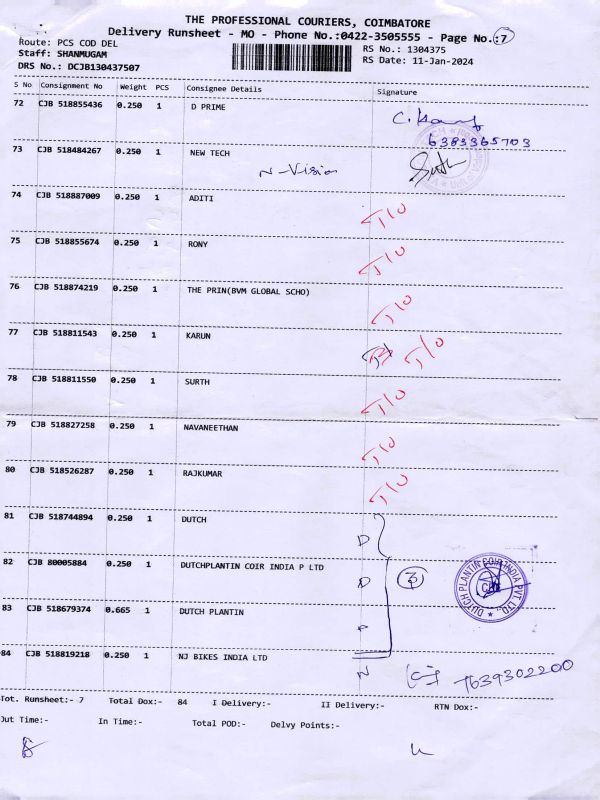 THE PROFESSIONAL COURIERS, COIMBATORE
Delivery Runsheet - MO - Phone No.:0422-3505555 - Page No.:7
Route: PCS COD DEL
RS No.: 1304375
Staff: SHANMUGAM
RS Date: 11-Jan-2024
DRS No.: DCJB130437507
S No Consignment No Weight PCS Consignee Details Signature
72 CJB 518855436 0.250 1 D PRIME
6383365703
73 CJB 518484267 0.250 1 NEW TECH
N-Vision
74 CJB 518887009 0.250 1 ADITI T/O
75 CJB 518855674 0.250 1 RONY T/O
76 CJB 518874219 0.250 1 THE PRIN(BVM GLOBAL SCHO) T/O
77 CJB 518811543 0.250 1 KARUN T/O
78 CJB 518811550 0.250 1 SURTH T/O
79 CJB 518827258 0.250 1 NAVANEETHAN T/O
80 CJB 518526287 0.250 1 RAJKUMAR T/O
81 CJB 518744894 0.250 1 DUTCH D
82 CJB 80005884 0.250 1 DUTCHPLANTIN COIR INDIA P LTD D 3
DUTCH PLANTIN COIR INDIA PVT. LTD. CBE
83 CJB 518679374 0.665 1 DUTCH PLANTIN P
84 CJB 518819218 0.250 1 NJ BIKES INDIA LTD N 7639302200
Tot. Runsheet:- 7 Total Dox:- 84 I Delivery:- II Delivery:- RTN Dox:-
Out Time:- In Time:- Total POD:- Delvy Points:-